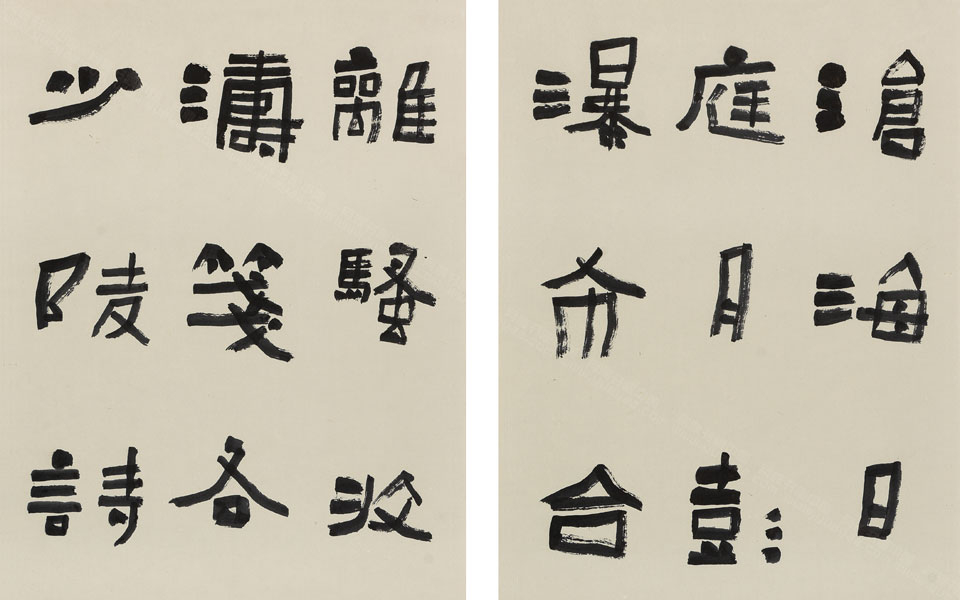 滄海日
庭月彭
瀑布合
離騷收
濤箋右
少陵詩